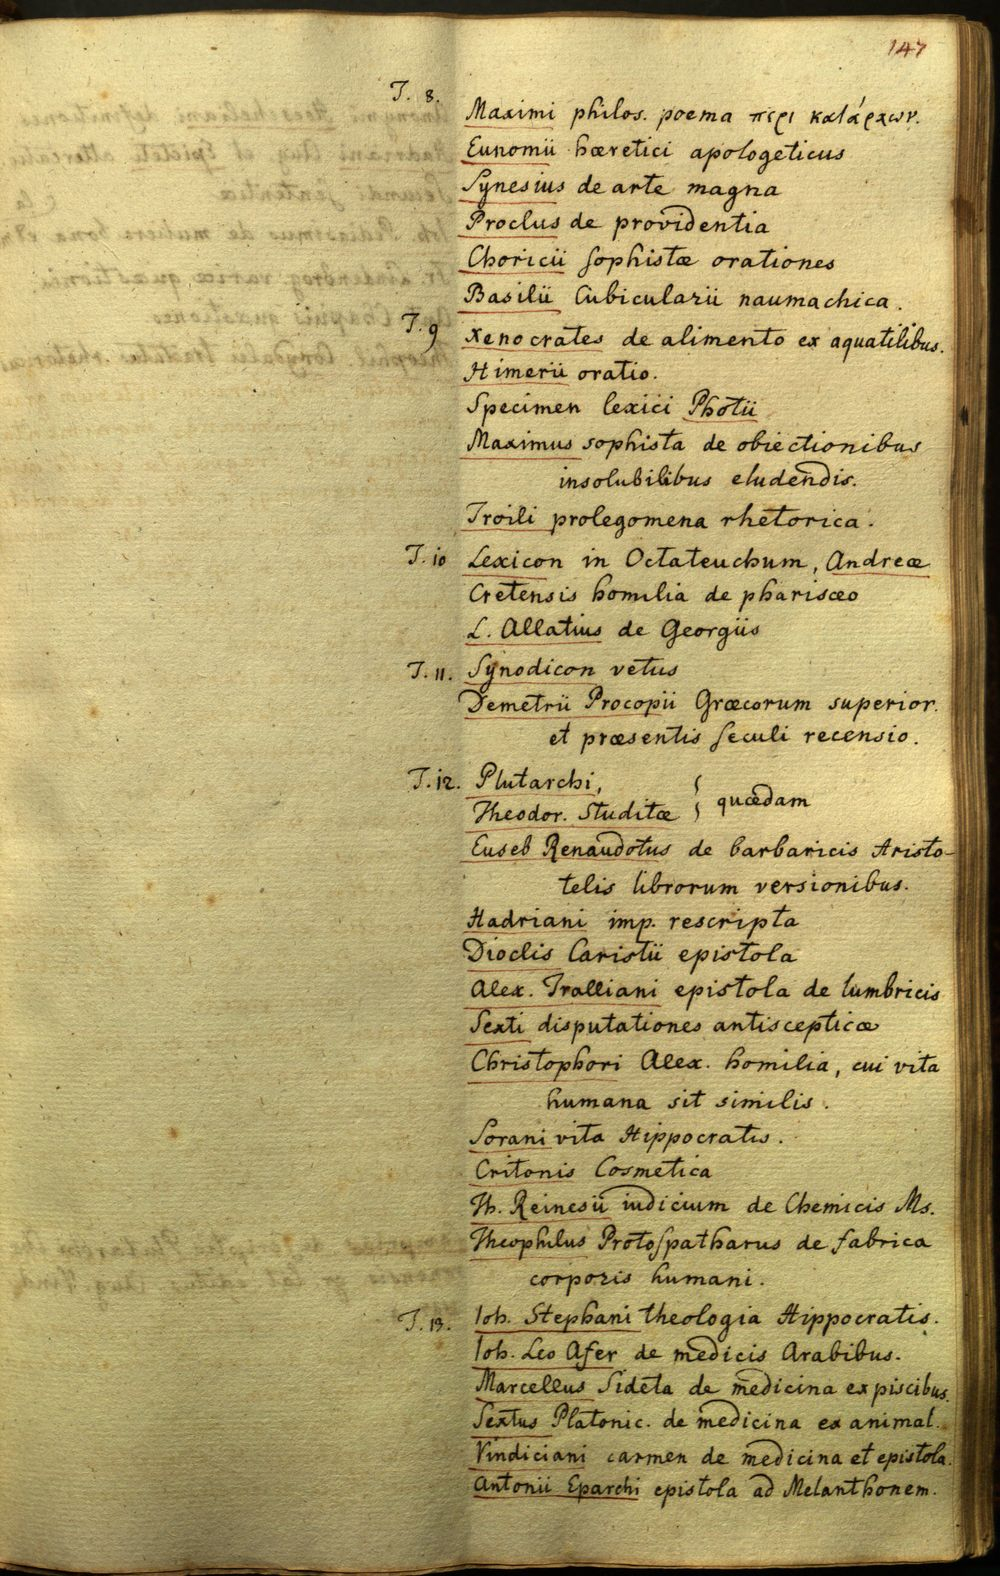 147
T. 8.
Maximi philos. poema περι κατάρχων.
Eunomii hæretici apologeticus
Synesius de arte magna
Proclus de providentia
Choricii sophistæ orationes
Basilii Cubicularii naumachica.
T. 9 Xenocrates de alimento ex aquatilibus.
Himerii oratio.
Specimen lexici Photii
Maximus sophista de obiectionibus
insolubilibus eludendis.
Troili prolegomena rhetorica.
T. 10 Lexicon in Octateuchum, Andreæ
Cretensis homilia de pharisæo
L. Allatius de Georgiis
T. 11. Synodicon vetus
Demetrii Procopii Græcorum superior.
et præsentis seculi recensio.
T. 12. Plutarchi,
Theodor. Studitæ } quædam
Euseb Renaudotus de barbaricis Aristo-
telis librorum versionibus.
Hadriani imp. rescripta
Dioclis Caristii epistola
Alex. Tralliani epistola de lumbricis
Sexti disputationes antiscepticæ
Christophori Alex. homilia, cui vita
humana sit similis.
Sorani vita Hippocratis.
Critonis Cosmetica
Th. Reinesii iudicium de Chemicis Ms.
Theophilus Protospatharus de fabrica
corporis humani.
T. 13. Ioh. Stephani theologia Hippocratis.
Ioh. Leo Afer de medicis Arabibus.
Marcellus Sideta de medicina ex piscibus.
Sextus Platonic. de medicina ex animal.
Vindiciani carmen de medicina et epistola.
Antonii Eparchi epistola ad Melanthonem.